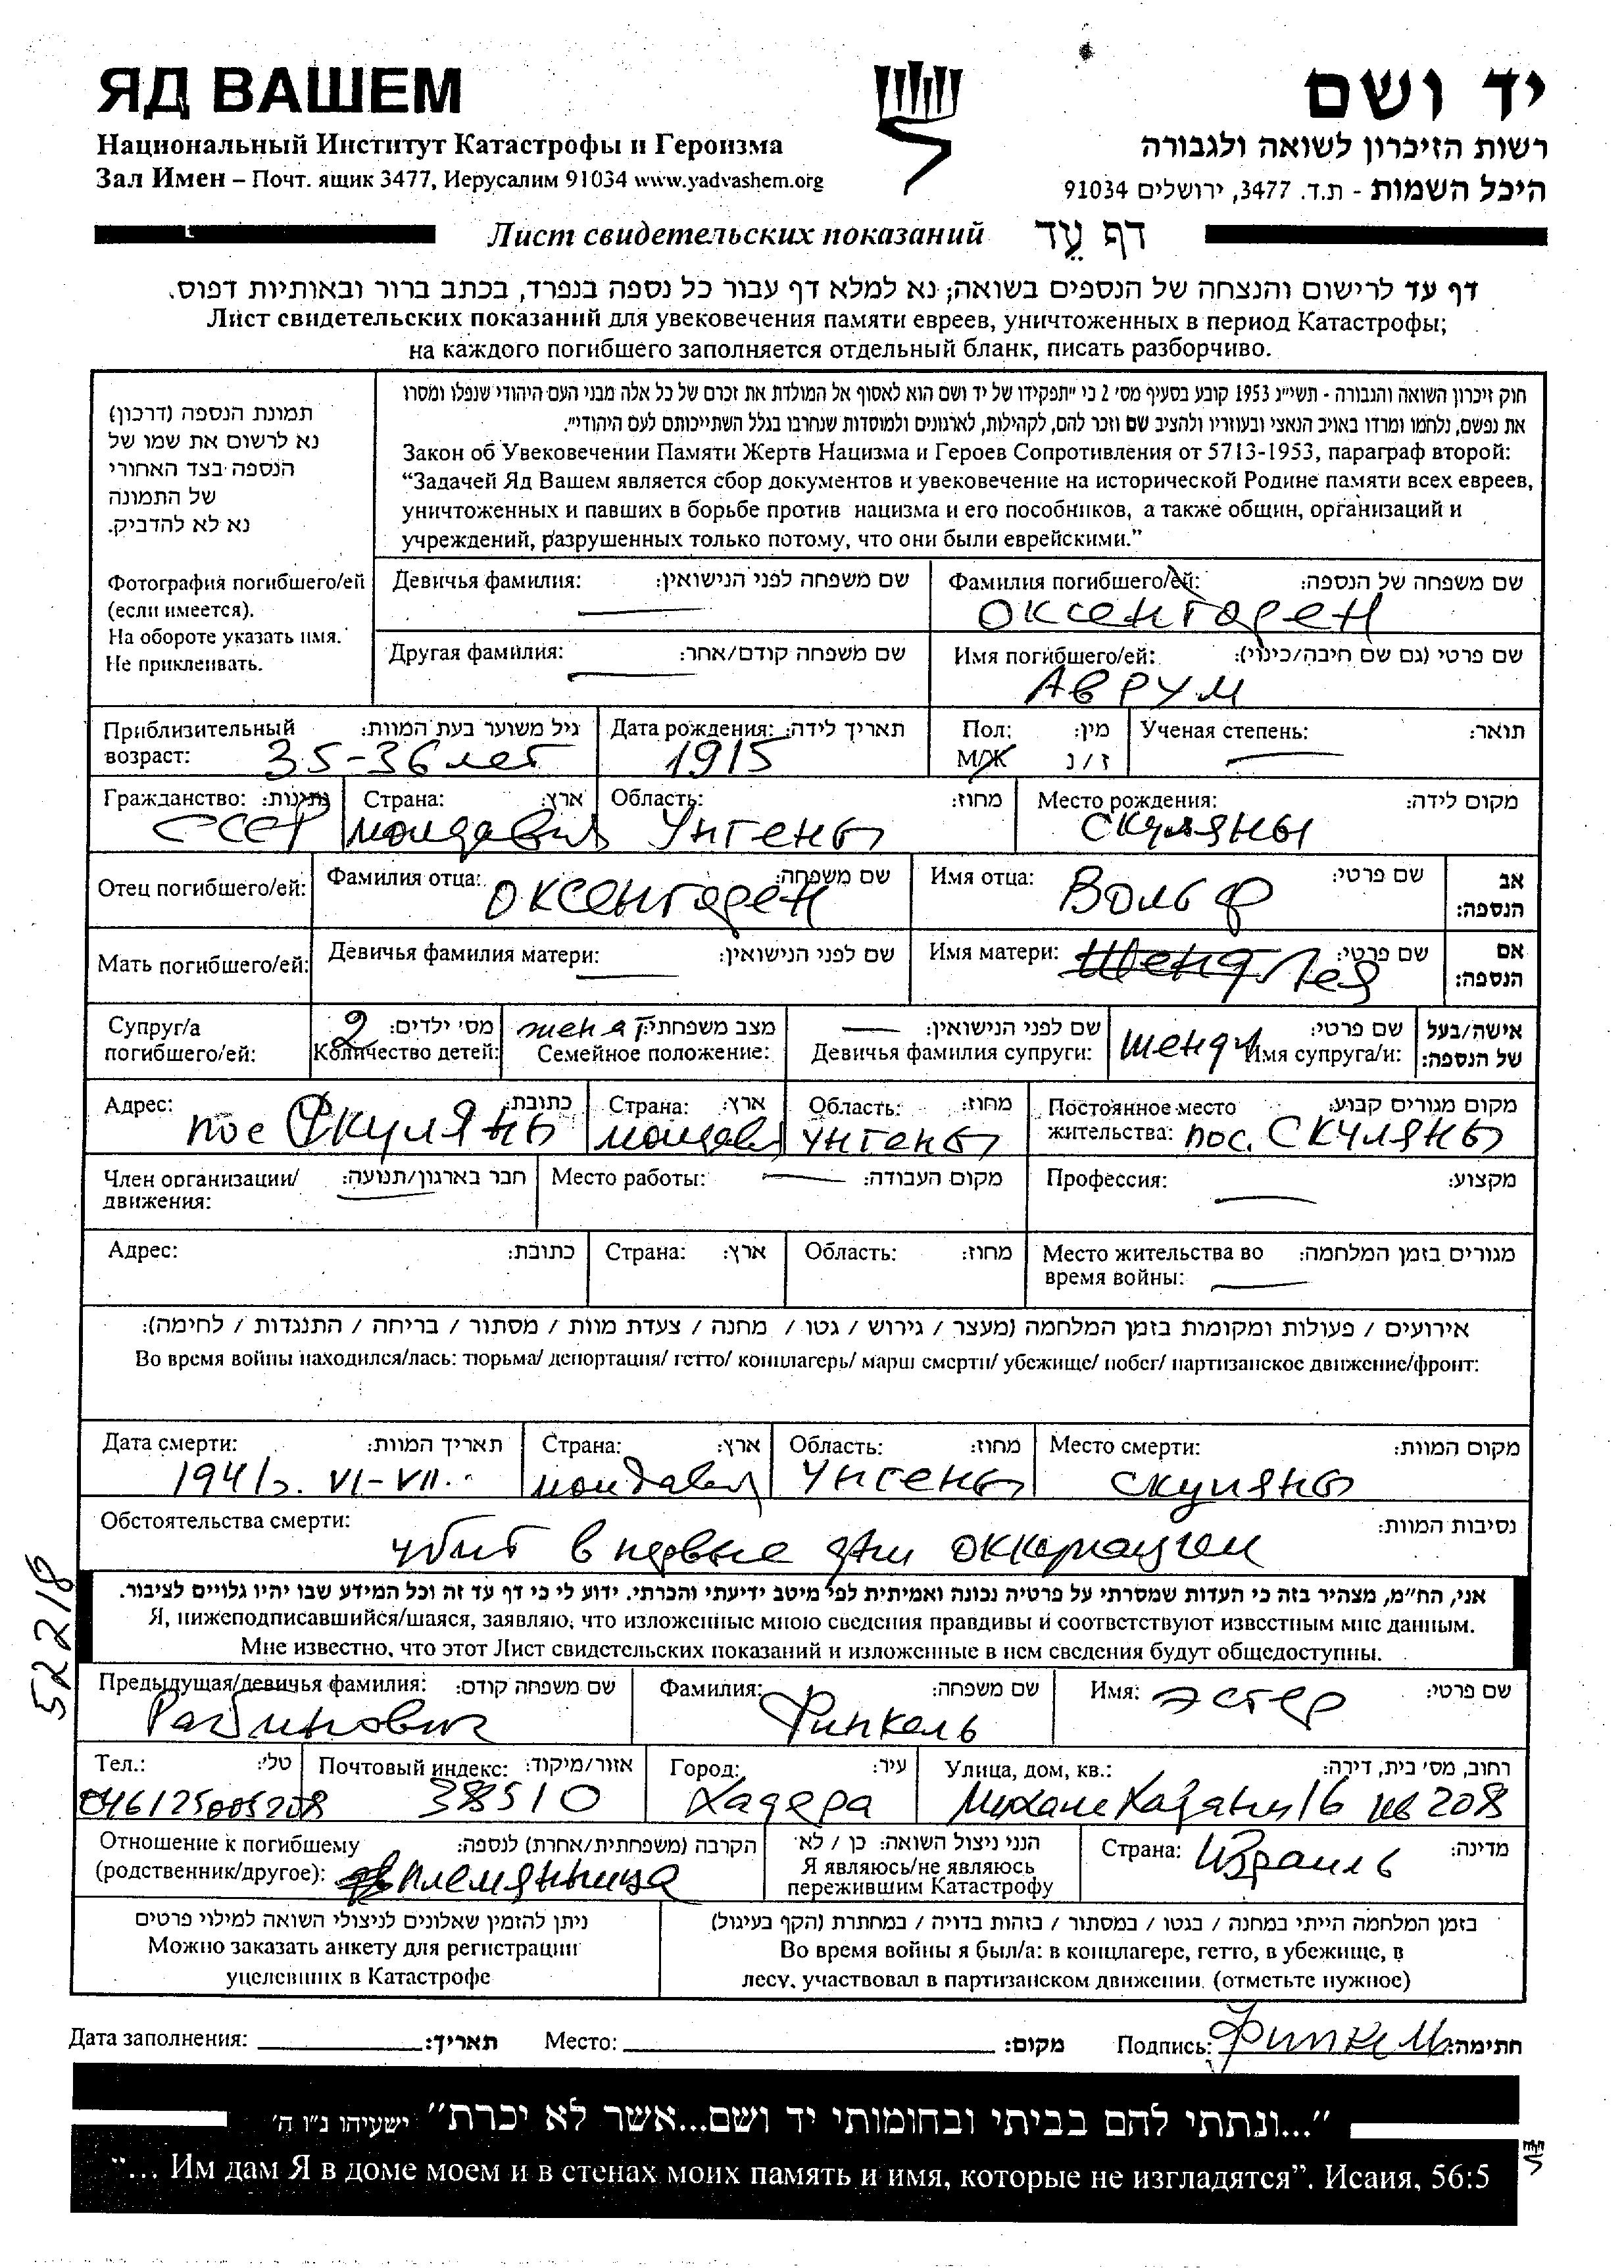 ЯД ВАШЕМ
יד ושם
Национальный Институт Катастрофы и Героизма
רשות הזיכרון לשואה ולגבורה
Зал Имен – Почт. ящик 3477, Иерусалим 91034 www.yadvashem.org
היכל השמות - ת.ד. 3477, ירושלים 91034
Лист свидетельских показаний דף עֵד
דף עד לרישום והנצחה של הנספים בשואה; נא למלא דף עבור כל נספה בנפרד, בכתב ברור ובאותיות דפוס.
Лист свидетельских показаний для увековечения памяти евреев, уничтоженных в период Катастрофы;
на каждого погибшего заполняется отдельный бланк, писать разборчиво.
תמונת הנספה (דרכון)
נא לרשום את שמו של
הנספה בצד האחורי
של התמונה
נא לא להדביק.
Фотография погибшего/ей
(если имеется).
На обороте указать имя.
Не приклеивать.
חוק זיכרון השואה והגבורה - תשי"ג 1953 קובע בסעיף מס' 2 כי "תפקידו של יד ושם הוא לאסוף אל המולדת את זכרם של כל אלה מבני העם היהודי שנפלו ומסרו
את נפשם, נלחמו ומרדו באויב הנאצי ובעוזריו ולהציב שם וזכר להם, לקהילות, לארגונים ולמוסדות שנחרבו בגלל השתייכותם לעם היהודי".
Закон об Увековечении Памяти Жертв Нацизма и Героев Сопротивления от 5713-1953, параграф второй:
“Задачей Яд Вашем является сбор документов и увековечение на исторической Родине памяти всех евреев,
уничтоженных и павших в борьбе против нацизма и его пособников, а также общин, организаций и
учреждений, разрушенных только потому, что они были еврейскими.”
Девичья фамилия: שם משפחה לפני הנישואין:
Фамилия погибшего/ей: שם משפחה של הנספה:
Оксенгорен
Другая фамилия: שם משפחה קודם/אחר:
Имя погибшего/ей: שם פרטי (גם שם חיבה/כינוי):
Аврум
Приблизительный возраст: גיל משוער בעת המוות:
35-36 лет
Дата рождения: תאריך לידה:
1915
Пол: מין:
М/Ж ז / נ
Ученая степень: תואר:
Гражданство: נתינות:
СССР
Страна: ארץ:
Молдавия
Область: מחוז:
Унгены
Место рождения: מקום לידה:
Скуляны
Отец погибшего/ей:
Фамилия отца: שם משפחה:
Оксенгорен
Имя отца: שם פרטי:
Вольф
אב הנספה:
Мать погибшего/ей:
Девичья фамилия матери: שם לפני הנישואין:
Имя матери: שם פרטי:
Шендл Лея
אם הנספה:
Супруг/а погибшего/ей:
מס' ילדים: 2
Количество детей:
מצב משפחתי: женат
Семейное положение:
שם לפני הנישואין:
Девичья фамилия супруги:
שם פרטי: Шендл
Имя супруга/и:
אישה/בעל של הנספה:
Адрес: כתובת:
пос Скуляны
Страна: ארץ:
Молдавия
Область: מחוז:
Унгены
Постоянное место жительства: מקום מגורים קבוע:
пос. Скуляны
Член организации/движения: חבר בארגון/תנועה:
Место работы: מקום העבודה:
Профессия: מקצוע:
Адрес: כתובת:
Страна: ארץ:
Область: מחוז:
Место жительства во время войны: מגורים בזמן המלחמה:
אירועים / פעולות ומקומות בזמן המלחמה (מעצר / גירוש / גטו / מחנה / צעדת מוות / מסתור / בריחה / התנגדות / לחימה):
Во время войны находился/лась: тюрьма/ депортация/ гетто/ концлагерь/ марш смерти/ убежище/ побег/ партизанское движение/фронт:
Дата смерти: תאריך המוות:
1941г. VI-VII.
Страна: ארץ:
Молдавия
Область: מחוז:
Унгены
Место смерти: מקום המוות:
Скуляны
Обстоятельства смерти: נסיבות המוות:
убит в первые дни оккупации
אני, הח"מ, מצהיר בזה כי העדות שמסרתי על פרטיה נכונה ואמיתית לפי מיטב ידיעתי והכרתי. ידוע לי כי דף עד זה וכל המידע שבו יהיו גלויים לציבור.
Я, нижеподписавшийся/шаяся, заявляю, что изложенные мною сведения правдивы и соответствуют известным мне данным.
Мне известно, что этот Лист свидетельских показаний и изложенные в нем сведения будут общедоступны.
52218
Предыдущая/девичья фамилия: שם משפחה קודם:
Рабинович
Фамилия: שם משפחה:
Финкель
Имя: שם פרטי:
Эстер
Тел.: טל':
046125005208
Почтовый индекс: אזור/מיקוד:
38510
Город: עיר:
Хадера
Улица, дом, кв.: רחוב, מס' בית, דירה:
16 кв 208
Отношение к погибшему (родственник/другое): הקרבה (משפחתית/אחרת) לנספה:
племянница
הנני ניצול השואה: כן / לא
Я являюсь/не являюсь
пережившим Катастрофу
Страна: מדינה:
Израиль
ניתן להזמין שאלונים לניצולי השואה למילוי פרטים
Можно заказать анкету для регистрации
уцелевших в Катастрофе
בזמן המלחמה הייתי במחנה / בגטו / במסתור / בזהות בדויה / במחתרת (הקף בעיגול)
Во время войны я был/а: в концлагере, гетто, в убежище, в
лесу, участвовал в партизанском движении (отметьте нужное)
Дата заполнения: תאריך: Место: מקום: Подпись: Финкель חתימה:
"...ונתתי להם בביתי ובחומותי יד ושם...אשר לא יכרת" ישעיהו נ"ו ה'
“... Им дам Я в доме моем и в стенах моих память и имя, которые не изгладятся”. Исаия, 56:5